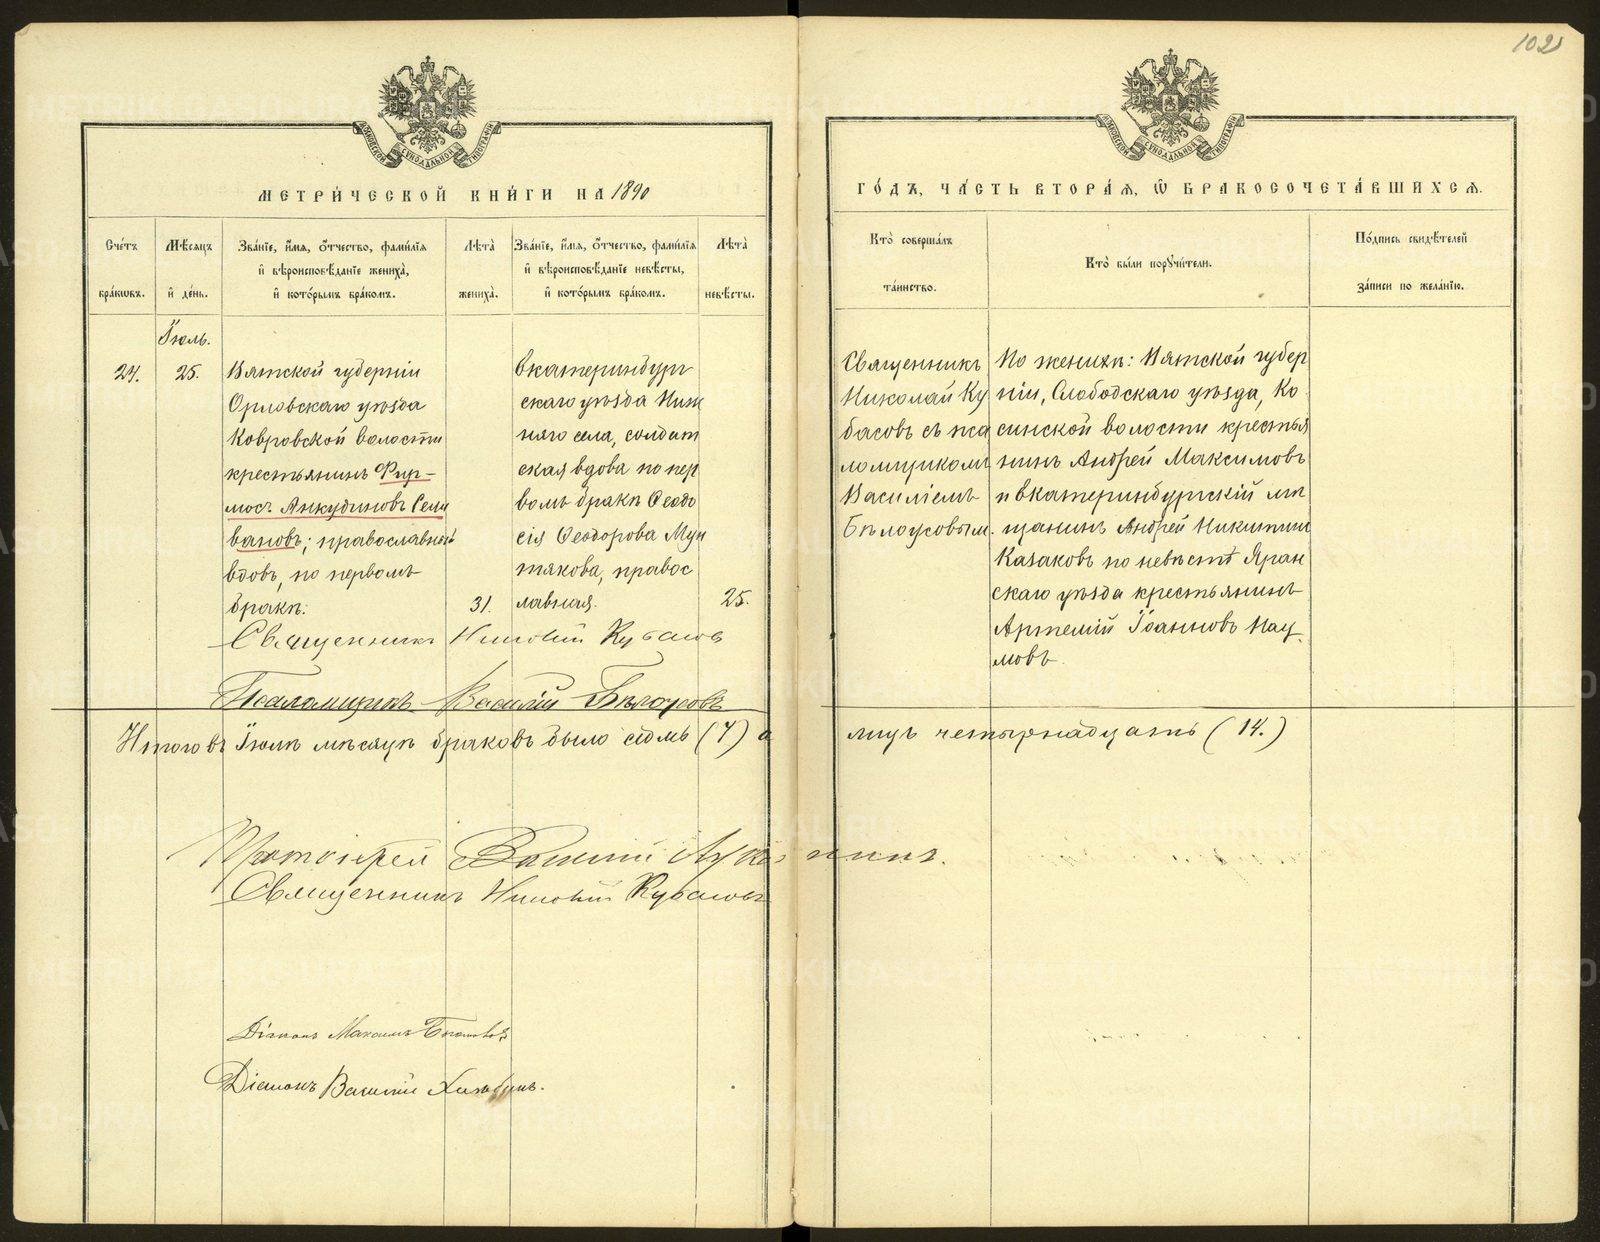 102
МОСКОВСКОЙ СѴНОДАЛЬНОЙ ТИПОГРАФІИ
МОСКОВСКОЙ СѴНОДАЛЬНОЙ ТИПОГРАФІИ
МЕТРИ́ЧЕСКОЙ КНИ́ГИ НА 1890
ГО́ДЪ, ЧА́СТЬ ВТОРА́Я, Ѡ БРАКОСОЧЕТА́ВШИХСЯ.
Сче́тъ бра́кѡвъ.
Мѣ́сяцъ и҆ де́нь.
Зва́нїе, и҆́мѧ, ѻ҆́тчество, фами́лїѧ
и҆ вѣроисповѣ́данїе жениха̀,
и҆ кото́рымъ бра́комъ.
Лѣ́та̀ жениха̀.
Зва́нїе, и҆́мѧ, ѻ҆́тчество, фами́лїѧ
и҆ вѣроисповѣ́данїе невѣ́сты,
и҆ кото́рымъ бра́комъ.
Лѣ́та̀ невѣ́сты.
Кто̀ соверша́лъ
та́инство.
Кто̀ бы́ли порꙋчи́тели.
По́дпись свидѣ́телей
за́писи по жела́нїю.
Іюль.
24.
25.
Вятской губерніи
Орловскаго уѣзда
Ковровской волости
крестьянинъ Фир-
мосъ Анкудиновъ Сели
вановъ; православный
вдовъ, по первомъ
бракѣ.
31.
Екатеринбург
скаго уѣзда Ниж
няго села, солдат
ская вдова по пер
вомъ бракѣ Ѳеодо
сія Ѳеодорова Мун
тякова, правос
лавная.
25.
Священникъ
Николай Ку
басовъ съ пса
ломщикомъ
Василіемъ
Бѣлоусовым.
По женихѣ: Вятской губер
ніи, Слободскаго уѣзда, Ко
синской волости крестья
нинъ Андрей Максимовъ
и Екатеринбургскій мѣ
щанинъ Андрей Никитин
Казаковъ по невѣстѣ Яран
скаго уѣзда крестьянинъ
Артемій Іоанновъ Нау
мовъ.
Священникъ Николай Кубасов
Псаломщикъ Василій Бѣлоусовъ
Итого въ Іюлѣ мѣсяцѣ браковъ было седмь (7) а
лицъ четырнадцать (14.)
Протоіерей Василій
Священникъ Николай Кубасовъ
Діаконъ Максимъ
Діаконъ Василій